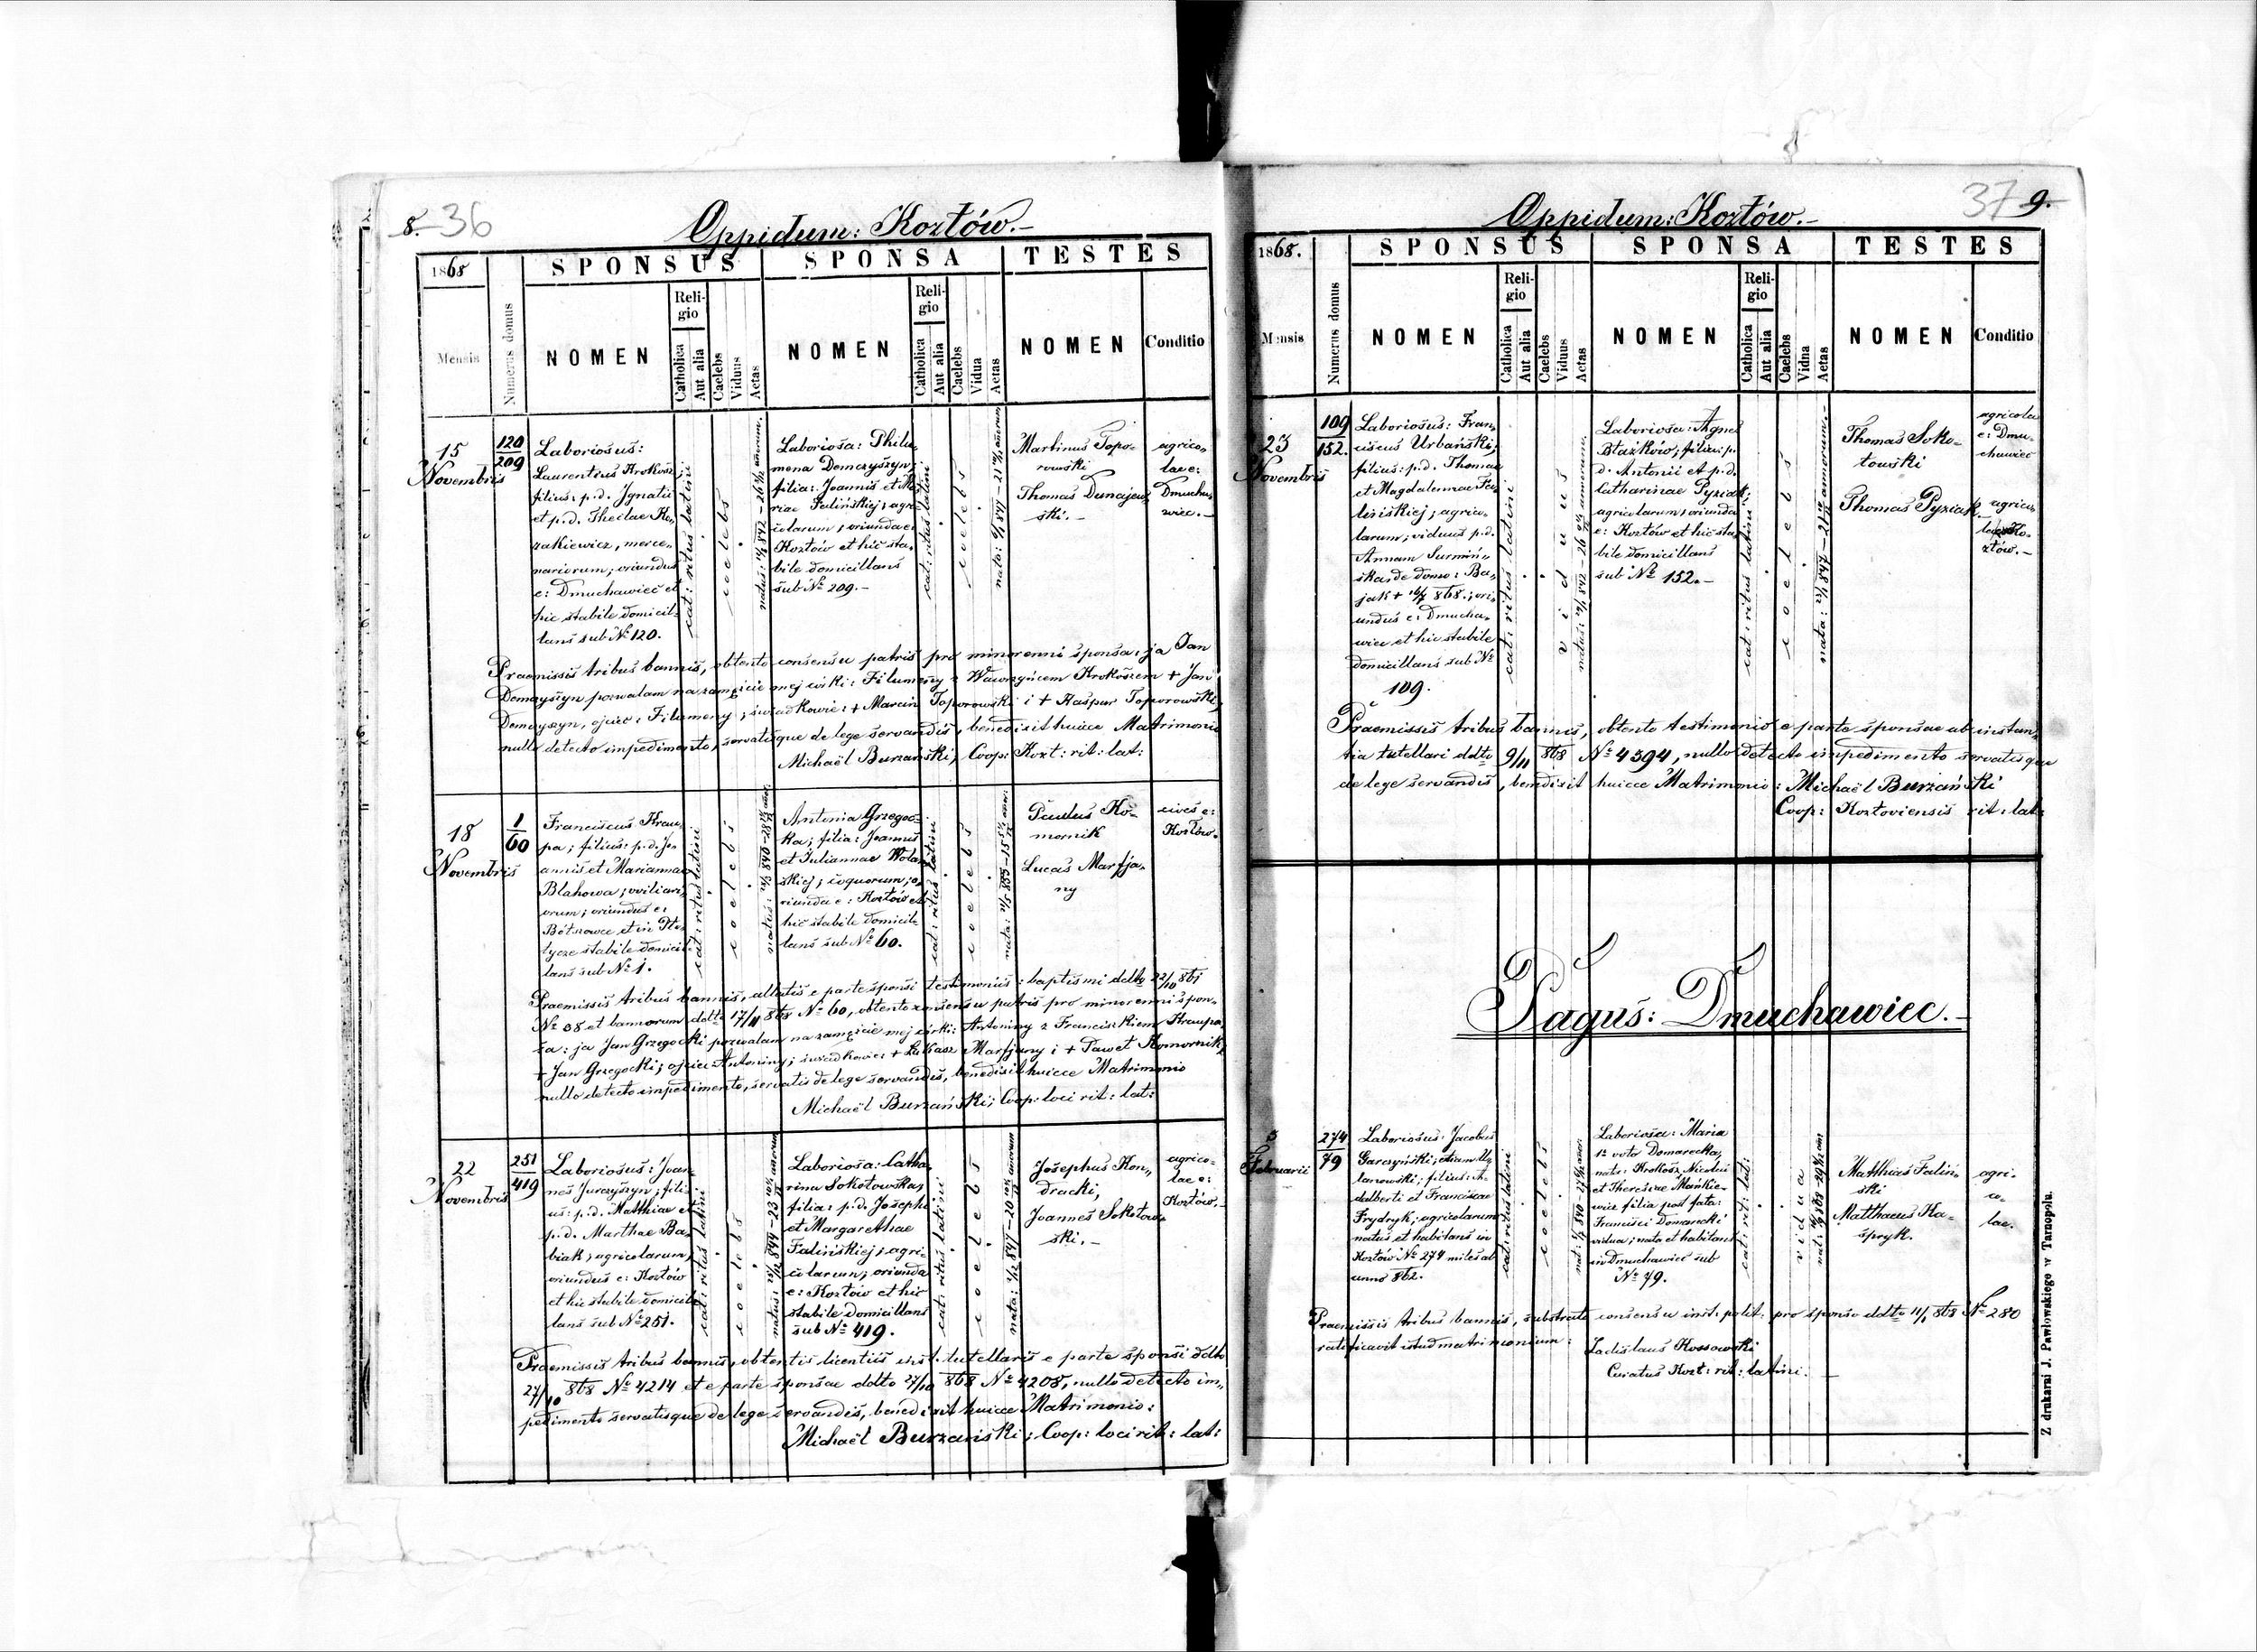 8. 36
Oppidum: Kozłów.-
1868
SPONSUS
SPONSA
TESTES
Mensis
Numerus domus
NOMEN
Religio
Catholica
Aut alia
Caelebs
Viduus
Aetas
NOMEN
Religio
Catholica
Aut alia
Caelebs
Vidua
Aetas
NOMEN
Conditio
15
Novembris
120
209
Laboriosus:
Laurentius Krokosz,
filius: p.d. Ignatii
et p.d. Theclae Ko-
zakiewicz, merce-
nariorum; oriundus
e: Dmuchawiec et
hic stabile domicil-
lans sub No 120.
cat: ritus latini
coelebs
Laboriosa: Philu-
mena Domczyszyn,
filia: Joannis et Ma-
riae Falińskiej; agri-
colarum; oriunda e:
Kozłów et hic sta-
bile domicillans
sub No 209.-
cat: ritus latini
coelebs
Martinus Topo-
rowski
Thomas Dunajew-
ski.-
agrico-
lae e:
Dmucha-
wiec.-
Praemissis tribus bannis, obtento consensu patris pro minorenni sponsa: ja Jan
Domczyszyn pozwalam na zamęście mej córki: Filumeny z Wawrzyńcem Krokoszem + Jan
Domczyszyn, ojciec: Filumeny; świadkowie: + Marcin Toporowski i + Kasper Toporowski,
nullo detecto impedimento, servatisque de lege servandis, benedixit huicce Matrimonio
Michaël Burzański, Coop: Kozł: rit: lat:
18
Novembris
1
60
Franciscus Krau-
pa; filius: p.d. Jo-
annis et Marianna
Blahowa; oviliari-
orum; oriundus e:
et in Ple-
tycze stabile domicil-
lans sub No 1.
cat: ritus latini
coelebs
Antonia Grzegoc-
ka; filia: Joannis
et Juliannae Wolań-
skiej; coquorum; o-
riunda e: Kozłów et
hic stabile domicil-
lans sub No 60.
cat: ritus latini
coelebs
Paulus Ko-
mornik
Lucas Marfja-
ny
cives e:
Kozłów.
Praemissis tribus bannis, allatis e parte sponsi testimoniis: baptismi ddto 22/10 861
No 38 et bannorum ddto 17/11 868 No 60, obtento consensu patris pro minorenni spon-
sa: ja Jan Grzegocki pozwalam na zamęście mej córki: Antoniny z Franciszkiem Kraupa,
+ Jan Grzegocki; ojciec Antoniny; świadkowie: + Łukasz Marfjany i + Paweł Komornik,
nullo detecto impedimento, servatis de lege servandis, benedixit huicce Matrimonio
Michaël Burzański; Coop: loci rit: lat:
22
Novembris
251
419
Laboriosus: Joan-
nes Jurczyszyn; fili-
us: p.d. Matthiae et
p.d. Marthae Ba-
biak; agricolarum,
oriundus e: Kozłów
et hic stabile domicil-
lans sub No 251.
cat: ritus latini
coelebs
Laboriosa: Catha-
rina Sokołowska,
filia: p.d. Josephi
et Margarethae
Falińskiej; agri-
colarum; oriunda
e: Kozłów et hic
stabile domicillans
sub No 419.
cat: ritus latini
coelebs
Josephus Kon-
dracki,
Joannes Sokołow-
ski.-
agrico-
lae e:
Kozłów.-
Praemissis tribus bannis, obtentis licentiis inst. tutellaris e parte sponsi ddto
27/10 868 No 4214 et e parte sponsae ddto 27/10 868 No 4208, nullo detecto im-
pedimento servatisque de lege servandis, benedixit huicce Matrimonio:
Michaël Burzański; Coop: loci rit: lat:
37 9.
Oppidum: Kozłów.-
1868.
SPONSUS
SPONSA
TESTES
Mensis
Numerus domus
NOMEN
Religio
Catholica
Aut alia
Caelebs
Viduus
Aetas
NOMEN
Religio
Catholica
Aut alia
Caelebs
Vidna
Aetas
NOMEN
Conditio
23
Novembris
109
152.
Laboriosus: Fran-
ciscus Urbański,
filius: p.d. Thomae
et Magdalennae Fa-
lińskiej; agrico-
larum; viduus p.d.
Annam Surmiń-
ska de domo: Ba-
jak + 16/7 868.; ori-
undus e: Dmucha-
wiec et hic stabile
domicillans sub No
109.
cat: ritus latini
viduus
Laboriosa: Agnes
Błażków; filia: p.
d. Antonii et p.d.
Catharinae Pyziak;
agricolarum; oriunda
e: Kozłów et hic sta-
bile domicillans
sub No 152.-
cat: ritus latini
coelebs
Thomas Soko-
łowski
Thomas Pyziak
agricola
e: Dmu-
chawiec
agrico-
Ko-
złów.-
Praemissis tribus bannis, obtento testimonio e parte sponsae ab instan-
tia tutellari ddto 9/11 868 No 4394, nullo detecto impedimento servatisque
de lege servandis, benedixit huicce Matrimonio: Michaël Burzański
Coop: Kozłoviensis rit: lat:
Pagus: Dmuchawiec.-
5
Februarii
274
79
Laboriosus: Jacobus
Garczyński; etiam
filius: A-
dalberti et Franciscae
Frydryk; agricolarum
natus et habitans in
Kozłów No 274 miles ab
anno 862.
cat: ritus latini
coelebs
Laboriosa: Maria
1o voto Domarecka,
nata: Krokosz, Nicolai
et Theresiae Mańkie-
wicz filia post fata:
Francisci Domarecki
vidua; nata et habitans
in Dmuchawiec sub
No 79.
cat: rit: lat:
vidua
Matthias Faliń-
ski
Matthaeus Ka-
spryk.
agri-
co-
lae.
Praemissis tribus bannis, substrato consensu inst: polit: pro sponso ddto 11/1 868 No 280
ratificavit istud matrimonium:
Ladislaus Kossowski
Curatus Kozł: rit: latini.
Z drukarni J. Pawłowskiego w Tarnopolu.